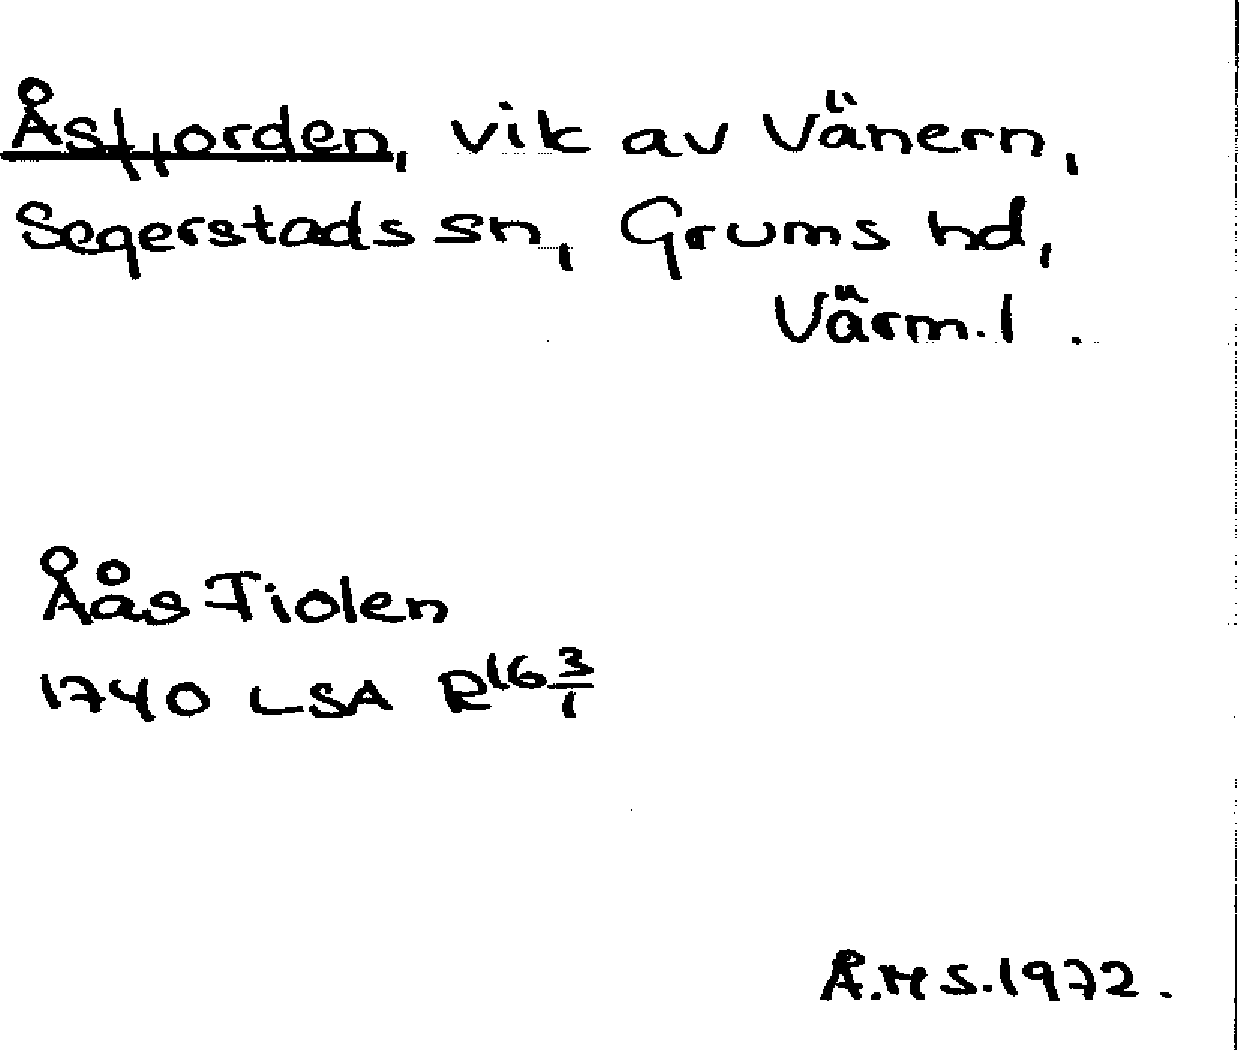 Åsfjorden, vik av Vänern,
Segerstads sn, Grums hd,
Värml.
Åås Fiolen
1740 LSA R16 3/1
Å.H S. 1972.